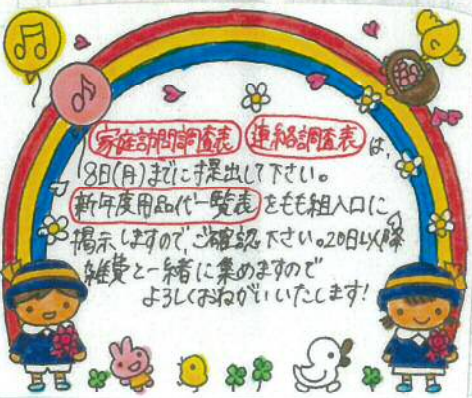 家庭訪問調査表 連絡調査表 は、
18日(月)までに提出して下さい。
新年度用品代一覧表 をもも組入口に
掲示しますので、ご確認下さい。20日以降
雑費と一緒に集めますので
よろしくおねがいいたします!